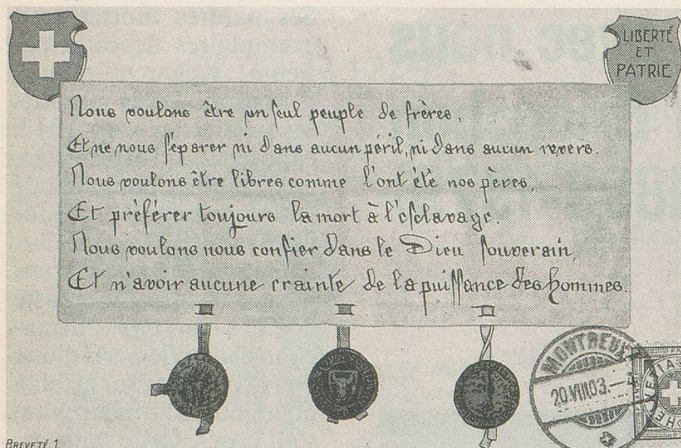 LIBERTÉ
ET
PATRIE
Nous voulons être un seul peuple de frères,
Et ne nous séparer ni dans aucun péril, ni dans aucun revers.
Nous voulons être libres comme l'ont été nos pères,
Et préférer toujours la mort à l'esclavage.
Nous voulons nous confier dans le Dieu souverain,
Et n'avoir aucune crainte de la puissance des hommes.
MONTREUX
20.VIII.03.—
BREVETÉ 1